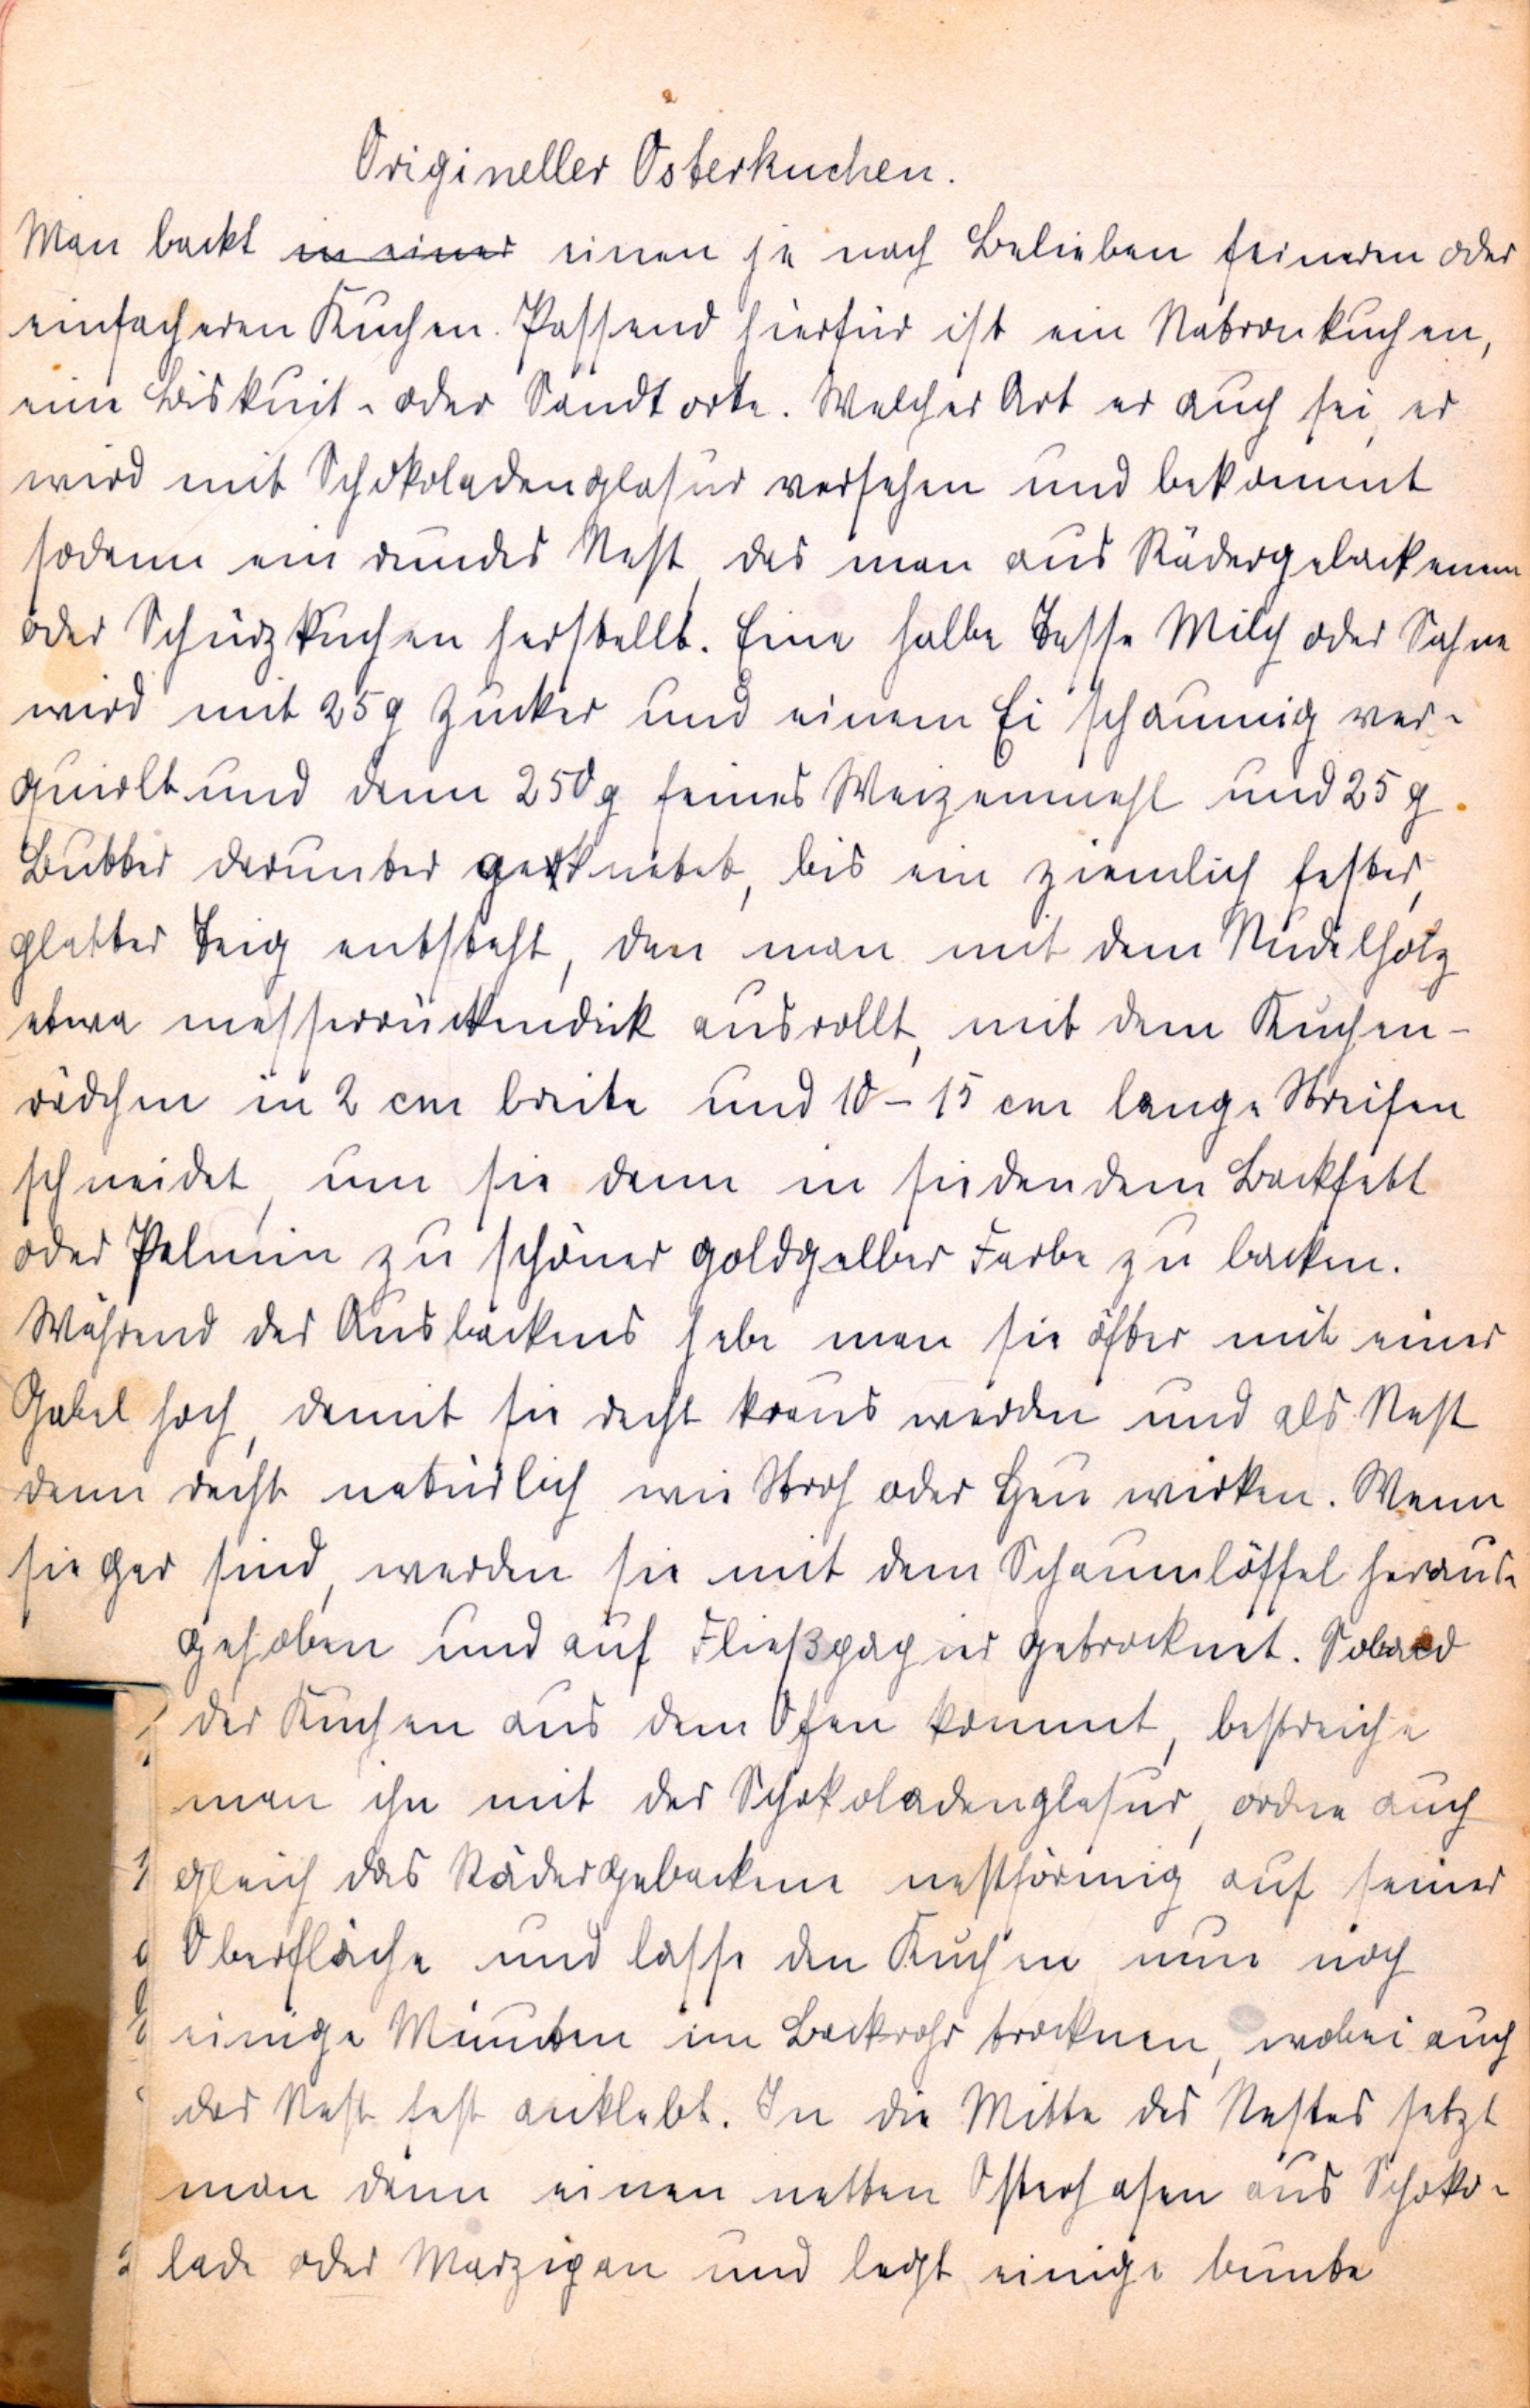 Origineller Osterkuchen.
Man backt in einer einen je nach Belieben feineren oder
einfacheren Kuchen. Passend hierfür ist ein Natronkuchen,
eine Biskuit- oder Sandtorte. Welcher Art er auch sei, er
wird mit Schokoladenglasur versehen und bekommt
sodann ein rundes Nest, das man aus Rädergebackenem
oder Schürzkuchen herstellt. Eine halbe Tasse Milch oder Sahne
wird mit 25 g Zucker und einem Ei schaumig ver-
quirlt und dann 250 g feines Weizenmehl und 25 g
Butter darunter geknetet, bis ein ziemlich fester,
glatter Teig entsteht, den man mit dem Nudelholz
etwa messerrückendick ausrollt, mit dem Kuchen-
rädchen in 2 cm breite und 10 – 15 cm lange Streifen
schneidet, um sie dann in siedendem Backfett
oder Palmin zu schöner goldgelber Farbe zu backen.
Während des Ausbackens hebe man sie öfter mit einer
Gabel hoch, damit sie recht kraus werden und als Nest
dann recht natürlich wie Stroh oder Heu wirken. Wenn
sie gar sind, werden sie mit dem Schaumlöffel heraus-
gehoben und auf Fließpapier getrocknet. Sobald
der Kuchen aus dem Ofen kommt, bestreiche
man ihn mit der Schokoladenglasur, ordne auch
gleich das Rädergebackene nestförmig auf seiner
Oberfläche und lasse den Kuchen nun noch
einige Minuten im Backrohr trocknen, wobei auch
das Nest fest anklebt. In die Mitte des Nestes setzt
man dann einen netten Osterhasen aus Schoko-
lade oder Marzipan und legt einige bunte